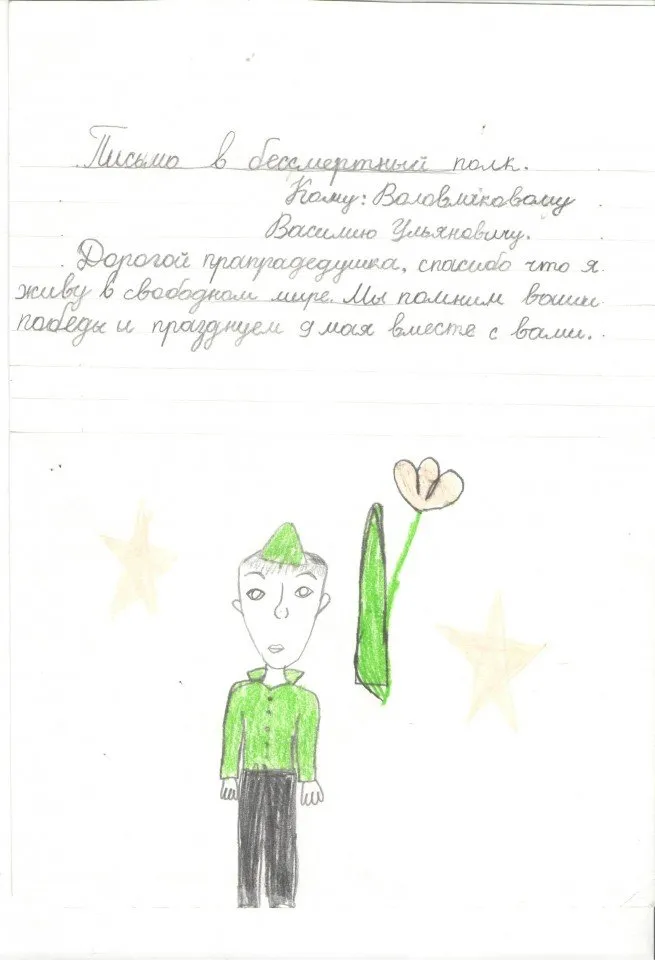 Письмо в бессмертный полк.
Кому:
Василию Ульяновичу.
Дорогой прапрадедушка, спасибо что я
живу в свободном мире. Мы помним ваши
победы и празднуем 9 мая вместе с вами.